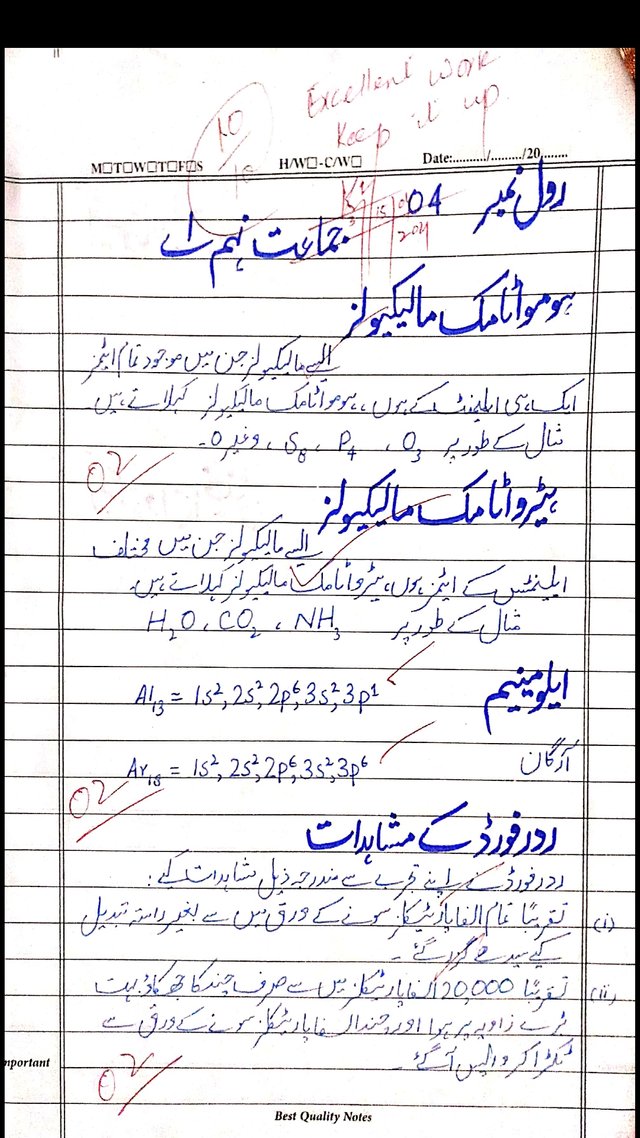 Excellent work
Keep it up
10
10
M☐T☐W☐T☐F☐S H/W☐-C/W☐ Date:........../........./20........
رول نمبر 04
جماعت نہم
ہومواٹامک مالیکیولز
ایسے مالیکیولز جن میں موجود تمام ایٹمز
ایک ہی ایلیمنٹ کے ہوں، ہومواٹامک مالیکیولز کہلاتے ہیں
مثال کے طور پر O₃ ، P₄ ، S₈ ، وغیرہ۔
02
ہیٹرواٹامک مالیکیولز
ایسے مالیکیولز جن میں مختلف
ایلیمنٹس کے ایٹمز ہوں، ہیٹرواٹامک مالیکیولز کہلاتے ہیں۔
مثال کے طور پر H₂O ، CO₂ ، NH₃
ایلومینیم
Al₁₃ = 1s², 2s², 2p⁶, 3s², 3p¹
آرگان
Ar₁₈ = 1s², 2s², 2p⁶, 3s², 3p⁶
02
ردرفورڈ کے مشاہدات
ردرفورڈ نے اپنے تجربے سے مندرجہ ذیل مشاہدات کیے:
(i) تقریباً تمام الفا پارٹیکلز سونے کے ورق میں سے بغیر راستہ تبدیل
کیے سیدھے گزر گئے۔
(ii) تقریباً 20,000 الفا پارٹیکلز میں سے صرف چند کا جھکاؤ بہت
بڑے زاویہ پر ہوا اور چند الفا پارٹیکلز سونے کے ورق سے
ٹکڑا کر واپس آ گئے۔
02
mportant
Best Quality Notes